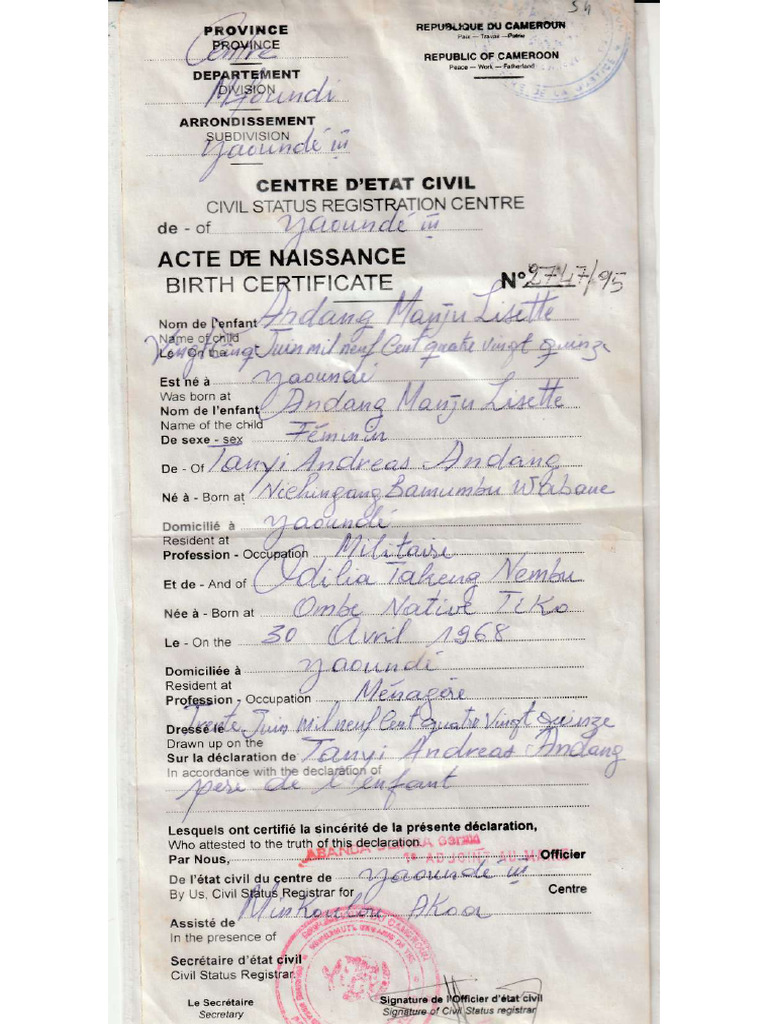 54
PROVINCE
PROVINCE
Centre
DEPARTEMENT
DIVISION
Mfoundi
ARRONDISSEMENT
SUBDIVISION
Yaoundé III
REPUBLIQUE DU CAMEROUN
Paix — Travail — Patrie
REPUBLIC OF CAMEROON
Peace — Work — Fatherland
DE LA JUSTICE
CENTRE D'ETAT CIVIL
CIVIL STATUS REGISTRATION CENTRE
de - of Yaoundé III
ACTE DE NAISSANCE
BIRTH CERTIFICATE
N° 2747/95
Nom de l'enfant Andang Manju Lisette
Name of child
Le - On the Vingt Cinq Juin mil neuf Cent quatre vingt quinze
Est né à Yaoundé
Was born at
Nom de l'enfant Andang Manju Lisette
Name of the child
De sexe - sex Féminin
De - Of Tanyi Andreas Andang
Né à - Born at Bamumbu Wabane
Domicilié à Yaoundé
Resident at
Profession - Occupation Militaire
Et de - And of Odilia Takeng Nembu
Née à - Born at Ombe Native Tiko
Le - On the 30 Avril 1968
Domiciliée à Yaoundé
Resident at
Profession - Occupation Ménagère
Dressé le Trente Juin mil neuf Cent quatre Vingt quinze
Drawn up on the
Sur la déclaration de Tanyi Andreas Andang
In accordance with the declaration of
père de l'enfant
Lesquels ont certifié la sincérité de la présente déclaration,
Who attested to the truth of this declaration
ABANDA
Par Nous, Officier
De l'état civil du centre de Yaoundé III
By Us, Civil Status Registrar for Centre
Assisté de Akoa
In the presence of
Secrétaire d'état civil
Civil Status Registrar
Le Secrétaire
Secretary
Signature de l'Officier d'état civil
Signature of Civil Status registrar